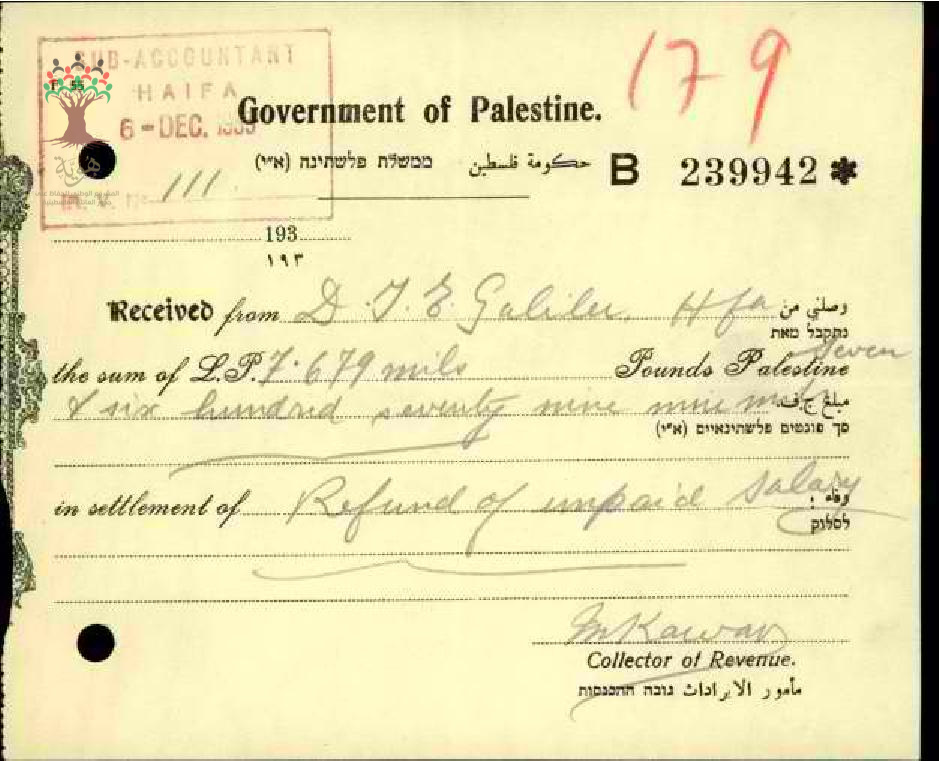 SUB-ACCOUNTANT
HAIFA
6 - DEC. 1935
111
179
Government of Palestine.
ממשלת פלשתינה (א״י) حكومة فلسطين
B 239942 *
193
١٩٣
Received from D. I. E. Galilee, Hfa وصلني من
נתקבל מאת
the sum of L.P. 7.679 mils Pounds Palestine seven
& six hundred seventy nine مبلغ ج.ف.
סך פונטים פלשתינאיים (א״י)
in settlement of Refund of unpaid salary وفاء :
לסלוק
Collector of Revenue.
مأمور الايرادات גובה ההכנסות